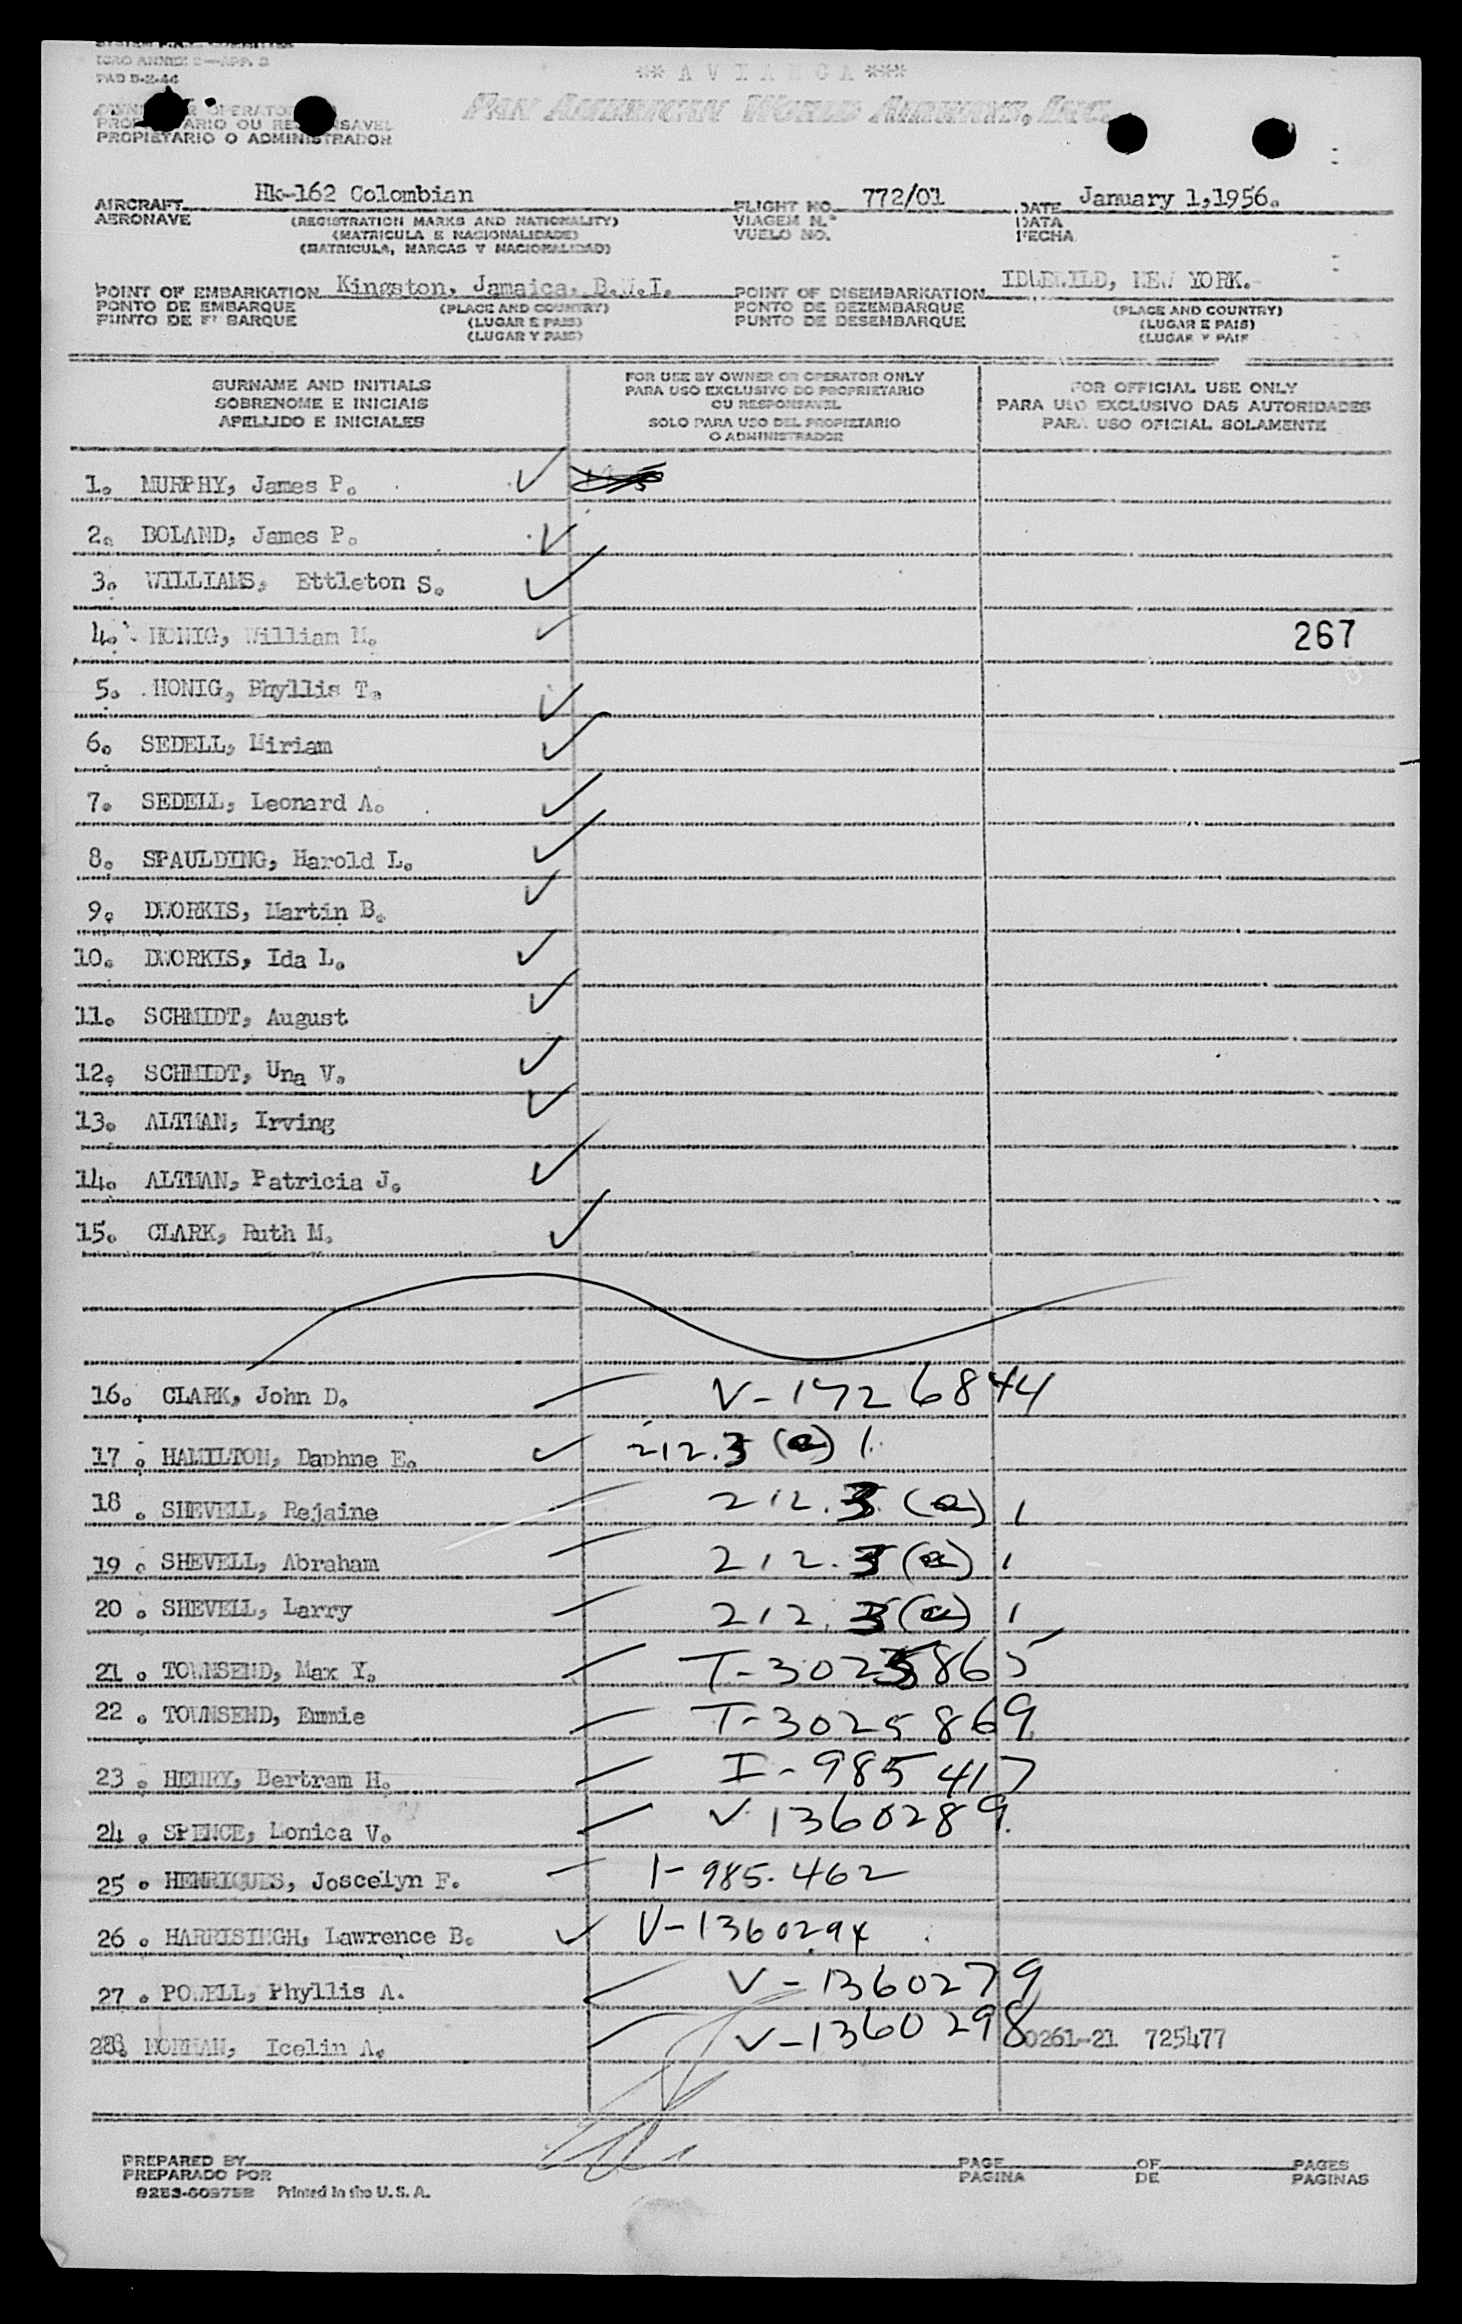 ICAO ANNEX 9—APP. 3
PAB 5-2-44
** A V I A N C A ***
PAN AMERICAN WORLD AIRWAYS, INC.
OPERATOR
PROPRIETARIO OU RESPONSAVEL
PROPIETARIO O ADMINISTRADOR
AIRCRAFT Hk-162 Colombian FLIGHT NO. 772/01 DATE January 1,1956.
AERONAVE (REGISTRATION MARKS AND NATIONALITY) VIAGEM N.º DATA
(MATRICULA E NACIONALIDADE) VUELO NO. FECHA
(MATRICULA, MARCAS Y NACIONALIDAD)
POINT OF EMBARKATION Kingston, Jamaica, B.W.I. POINT OF DISEMBARKATION IDLEWILD, NEW YORK.-
PONTO DE EMBARQUE (PLACE AND COUNTRY) PONTO DE DEZEMBARQUE (PLACE AND COUNTRY)
PUNTO DE EMBARQUE (LUGAR E PAIS) PUNTO DE DESEMBARQUE (LUGAR E PAIS)
(LUGAR Y PAIS) (LUGAR Y PAIS
SURNAME AND INITIALS
SOBRENOME E INICIAIS
APELLIDO E INICIALES
FOR USE BY OWNER OR OPERATOR ONLY
PARA USO EXCLUSIVO DO PROPRIETARIO
OU RESPONSAVEL
SOLO PARA USO DEL PROPIETARIO
O ADMINISTRADOR
FOR OFFICIAL USE ONLY
PARA USO EXCLUSIVO DAS AUTORIDADES
PARA USO OFICIAL SOLAMENTE
1. MURPHY, James P. ✓
2. BOLAND, James P. ✓
3. WILLIAMS, Ettleton S. ✓
4. HONIG, William M. ✓ 267
5. HONIG, Phyllis T. ✓
6. SEDELL, Miriam ✓
7. SEDELL, Leonard A. ✓
8. SPAULDING, Harold L. ✓
9. DWORKIS, Martin B. ✓
10. DWORKIS, Ida L. ✓
11. SCHMIDT, August ✓
12. SCHMIDT, Una V. ✓
13. ALTMAN, Irving ✓
14. ALTMAN, Patricia J. ✓
15. CLARK, Ruth M. ✓
16. CLARK, John D. V-1726844
17. HAMILTON, Daphne E. ✓ 212.3 (a) 1
18. SHEVELL, Rejaine 212.3 (a) 1
19. SHEVELL, Abraham 212.3 (a) 1
20. SHEVELL, Larry 212.3 (a) 1
21. TOWNSEND, Max Y. T-3025865
22. TOWNSEND, Emmie T-3025869
23. HENRY, Bertram H. I-985417
24. SPENCE, Monica V. V-1360289
25. HENRIQUES, Joscelyn F. I-985.462
26. HARRISINGH, Lawrence B. ✓ V-1360294
27. POWELL, Phyllis A. V-1360279
28. NORMAN, Icelin A. V-1360298 0261-21 725477
PREPARED BY PAGE OF PAGES
PREPARADO POR PAGINA DE PAGINAS
Printed in the U. S. A.